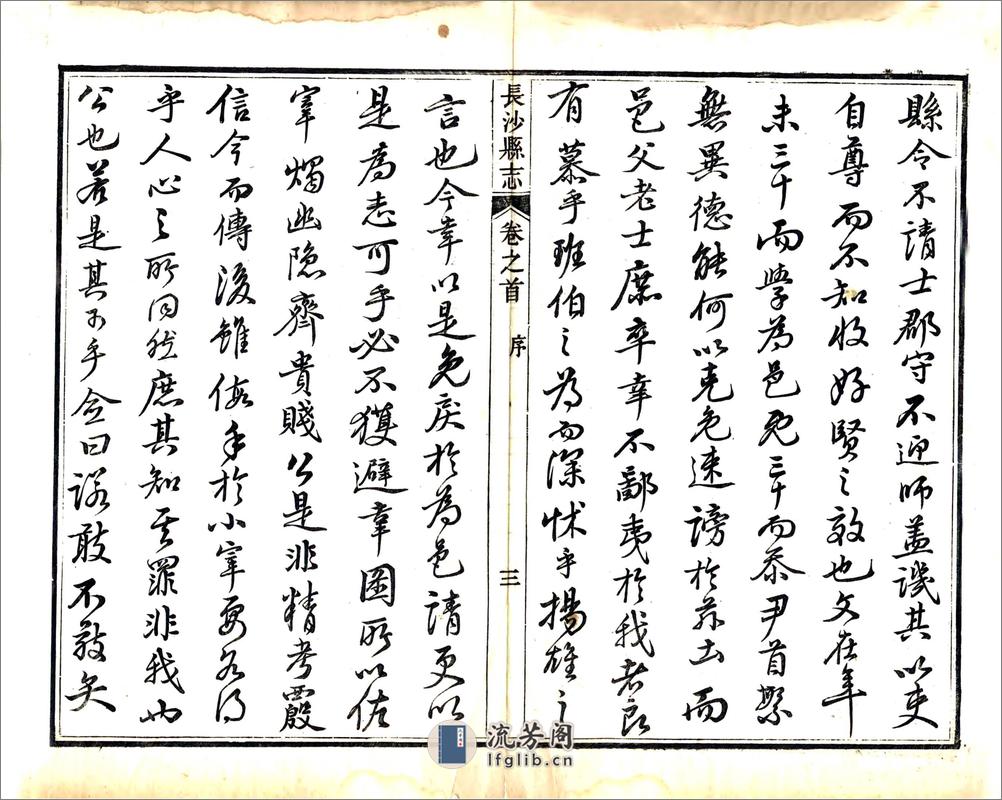 縣令不請士郡守不迎師蓋譏其以吏
自尊而不知收好賢之效也文在年
未三十而學為邑既三十而忝尹首繁
無異德能何以克免速謗於茲土而
邑父老士庶卒幸不鄙夷於我者良
有慕乎班伯之為而深怵乎揚雄之
長沙縣志 卷之首 序 三
言也今幸以是免戾於為邑請更以
是為志可乎必不獲避韋圖所以佐
宰燭幽隱齊貴賤公是非精考覈
信今而傳後雖假手於小宰要各得
乎人心之所同然庶其知我罪非我也
公也若是其可乎僉曰諾敢不敬矣
流芳阁
lfglib.cn